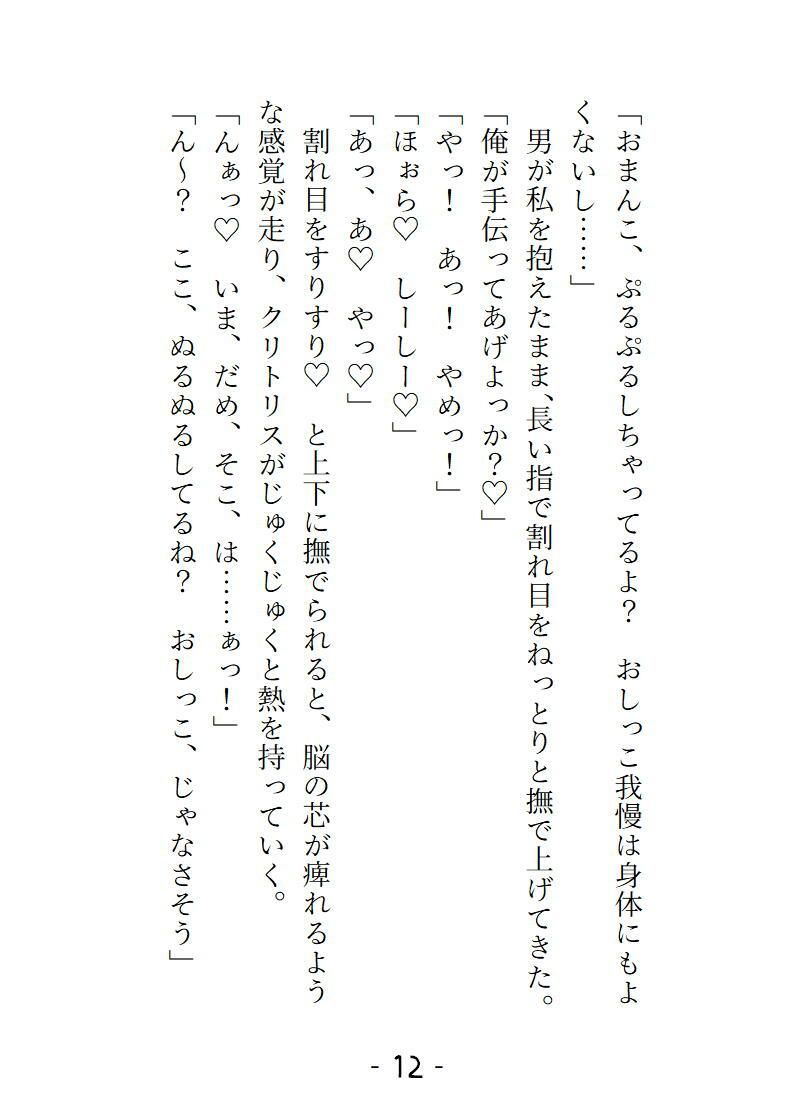 「おまんこ、ぷるぷるしちゃってるよ？　おしっこ我慢は身体にもよ
くないし……」
　男が私を抱えたまま、長い指で割れ目をねっとりと撫で上げてきた。
「俺が手伝ってあげよっか？♡」
「やっ！　あっ！　やめっ！」
「ほぉら♡　しーしー♡」
「あっ、あ♡　やっ♡」
　割れ目をすりすり♡　と上下に撫でられると、脳の芯が痺れるよう
な感覚が走り、クリトリスがじゅくじゅくと熱を持っていく。
「んぁっ♡　いま、だめ、そこ、は……ぁっ！」
「ん～？　ここ、ぬるぬるしてるね？　おしっこ、じゃなさそう」
- 12 -